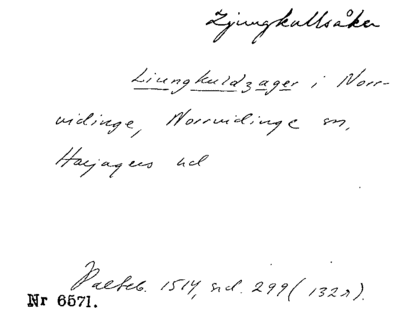 Ljungkullsåker
Liungkuldzager i Norr-
vidinge, Norrvidinge sn,
Harjagers hd
Palteb. 1514, sid. 299 (132r).
Nr 6571.